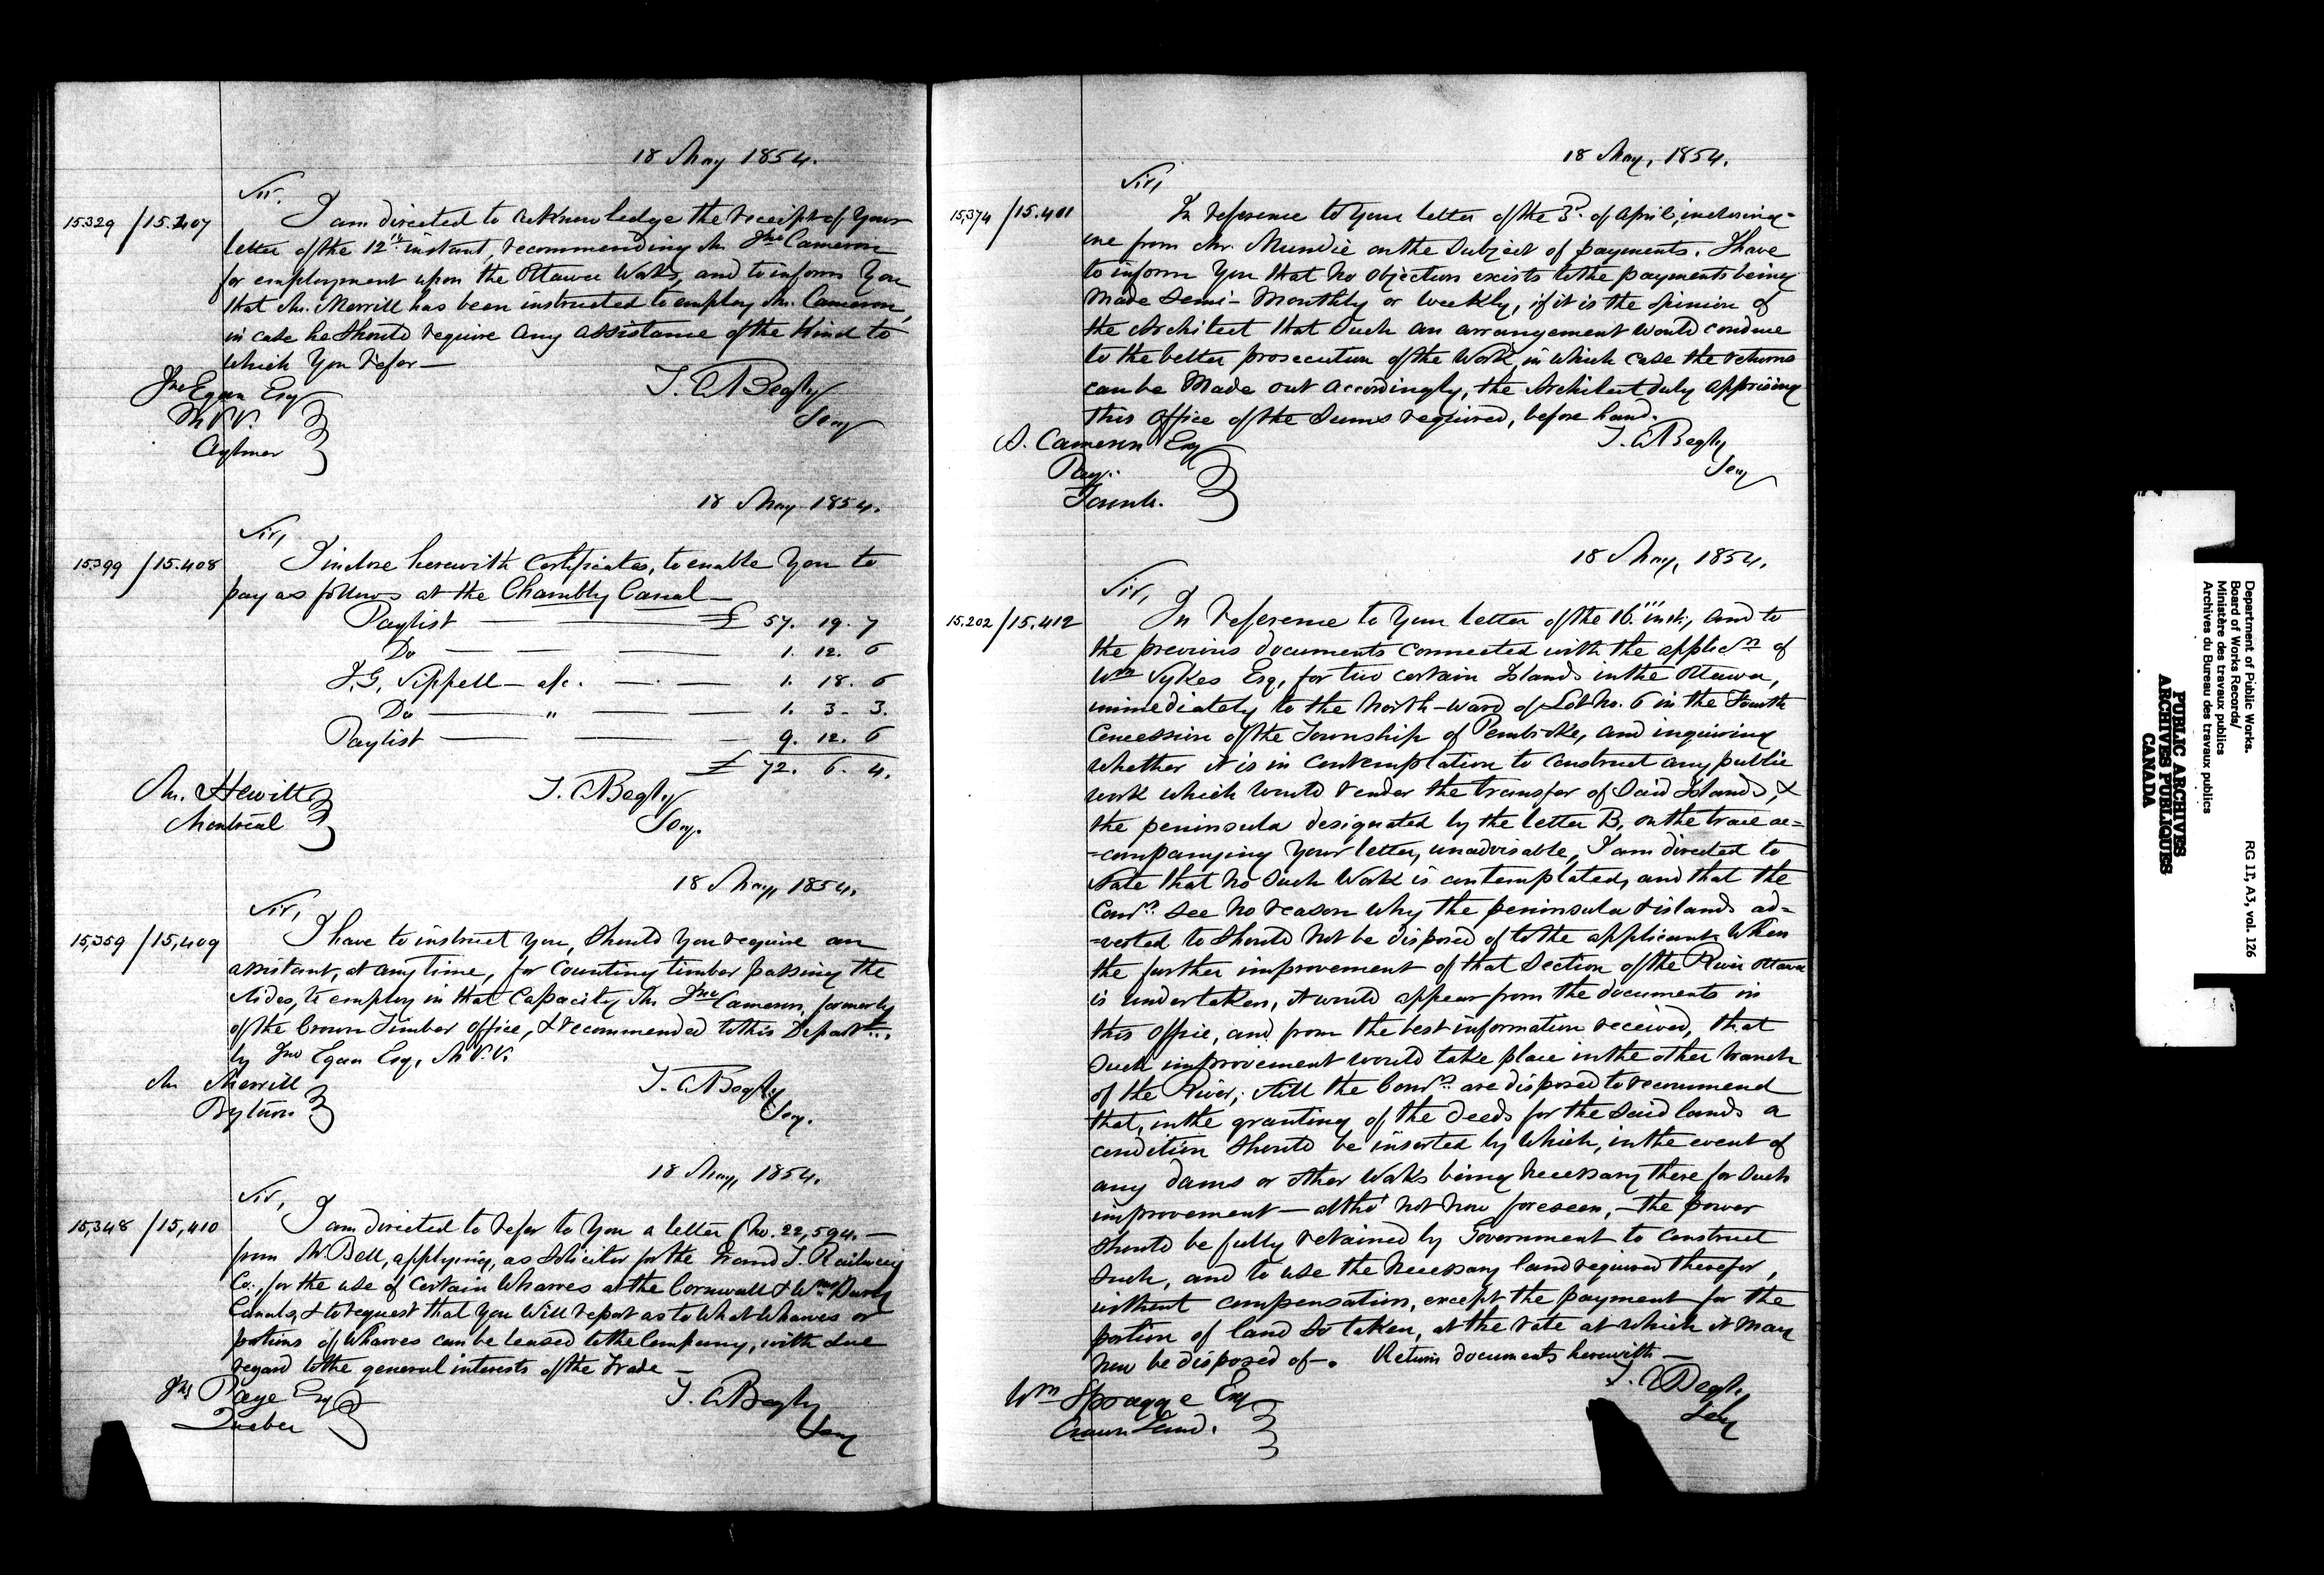 18 May 1854.
Sir.
15329 /15.407 I am directed to acknowledge the receipt of your
letter of the 12th instant, recommending Mr. Jno Cameron
for employment upon the Ottawa Works, and to inform you
that Mr. Merrill has been instructed to employ Mr. Cameron,
in case he should require any assistance of the kind to
which you refer —
Jno Egan Esq
M.P.P.
Aylmer
T. A Begly
Secy
18 May 1854.
Sir,
15399 /15.408 I inclose herewith Certificates, to enable you to
pay as follows at the Chambly Canal —
Paylist — £ 57. 19. 7
Do — 1. 12. 6
F.G. Sippell — a/c. — 1. 18. 6
Do — " — 1. 3 - 3.
Paylist — 9. 12. 6
£ 72. 6. 4.
Mr. Hewitt
Montreal
T. A Begly
Secy.
18 May, 1854.
Sir,
15,359 /15,409 I have to instruct you, should you require an
assistant, at any time, for counting timber passing the
slides, to employ in that capacity Mr. Jno Cameron, formerly
of the Crown Timber Office, & recommended to this Departmt.
by Jno Egan Esq, M.P.P.
Mr Merrill
Bytown
T. A Begly
Secy.
18 May, 1854.
Sir,
15,348 /15,410 I am directed to refer to you a letter (No. 22,594. —
from W. Bell, applying, as Solicitor for the Grand T. Railway
Co., for the use of certain Wharves at the Cornwall & Wmsburg
Canals, & to request that you will report as to what Wharves or
portions of Wharves can be leased to the Company, with due
regard to the general interests of the trade —
Jno Page Esq
Quebec
T. A Begly
Secy
18 May, 1854.
Sir,
15,374 /15.411 In reference to your letter of the 3d. of April, inclosing
one from Mr. Mundie on the subject of payments. I have
to inform you that no objection exists to the payments being
made semi-monthly or weekly, if it is the opinion of
the Architect that such an arrangement would conduce
to the better prosecution of the work, in which case the returns
can be made out accordingly, the Architect duly apprising
this Office of the sums required, before hand.
Cameron Esq
Toronto.
T. A Begly
Secy
18 May, 1854.
Sir,
15.202 /15.412 In reference to your letter of the 16th inst., and to
the previous documents connected with the applicn of
Wm Sykes Esq, for two certain Islands in the Ottawa,
immediately to the north-ward of Lot No. 6 in the Fourth
Concession of the Township of Pembroke, and inquiring
whether it is in contemplation to construct any public
work which would render the transfer of said Islands, &
the peninsula designated by the letter B, on the trace ac=
=companying your letter, unadvisable, I am directed to
state that no such work is contemplated, and that the
Comrs. see no reason why the peninsula & islands ad=
=verted to should not be disposed of to the applicant. When
the further improvement of that section of the River Ottawa
is undertaken, it would appear from the documents in
this office, and from the best information received, that
such improvement would take place in the other branch
of the River; still the Comrs. are disposed to recommend
that, in the granting of the deeds for the said lands a
condition should be inserted by which, in the event of
any dams or other works being necessary there for such
improvement — altho' not now foreseen, — the power
should be fully retained by Government to construct
such, and to use the necessary land required therefor,
without compensation, except the payment for the
portion of land so taken, at the rate at which it may
now be disposed of —. Return documents herewith —
Wm Spragge Esq
Crown Land.
T. A Begly
Secy
Department of Public Works.
Board of Works Records/
Ministère des travaux publics
Archives du Bureau des travaux publics
RG 11, A3, vol. 126
PUBLIC ARCHIVES
ARCHIVES PUBLIQUES
CANADA